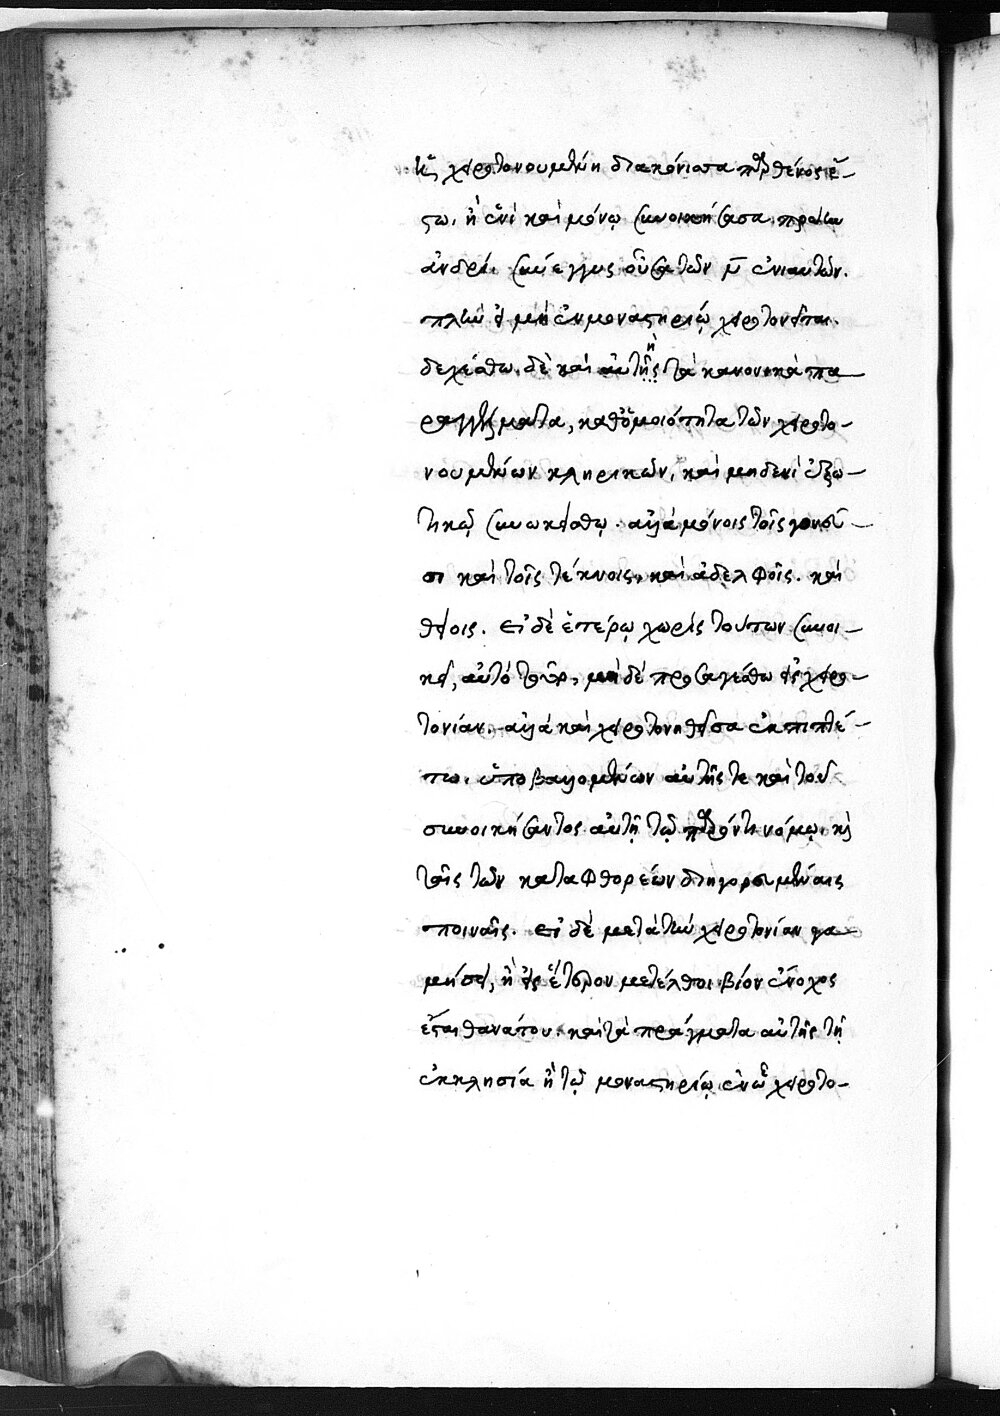 Κϛ χειροτονουμένη διακόνισσα παρθένος ἔ-
στω. ἢ ἑνὶ καὶ μόνῳ συνοικήσασα πρώτῳ
ἀνδρί. καὶ ἐγγὺς οὖσα τῶν μ̄ ἐνιαυτῶν.
πλὴν εἰ μὴ ἐν μοναστηρίῳ χειροτονεῖται.
δεχέσθω δὲ καὶ αὐτὴ τὰ κανονικὰ πα
ραγγέλματα, καθ' ὁμοιότητα τῶν χειροτο-
νουμένων κληρικῶν, καὶ μηδενὶ ἐξω-
τικῷ συνοικείσθω. ἀλλὰ μόνοις τοῖς γονεῦ-
σι καὶ τοῖς τέκνοις, καὶ ἀδελφοῖς. καὶ
θείοις. Εἰ δὲ ἑτέρῳ χωρὶς τούτων συνοι-
κεῖ, μηδὲ προσαγέσθω εἰς χειρο-
τονίαν. ἀλλὰ καὶ χειροτονηθεῖσα ἐκπιπτέ-
τω. ὑποβαλλομένων αὐτῆς τε καὶ τοῦ
συνοικήσαντος αὐτῇ τῷ παρόντι νόμῳ. κ
ταῖς τῶν καταφθορέων διηγορευμέναις
ποιναῖς. Εἰ δὲ μετὰ τὴν χειροτονίαν γα
μήσει, ἢ εἰς ἕτερον μετέλθοι βίον ἔνοχος
ἔσται θανάτου. καὶ τὰ πράγματα αὐτῆς τῇ
ἐκκλησίᾳ ἢ τῷ μοναστηρίῳ ἐν ᾧ χειροτο-